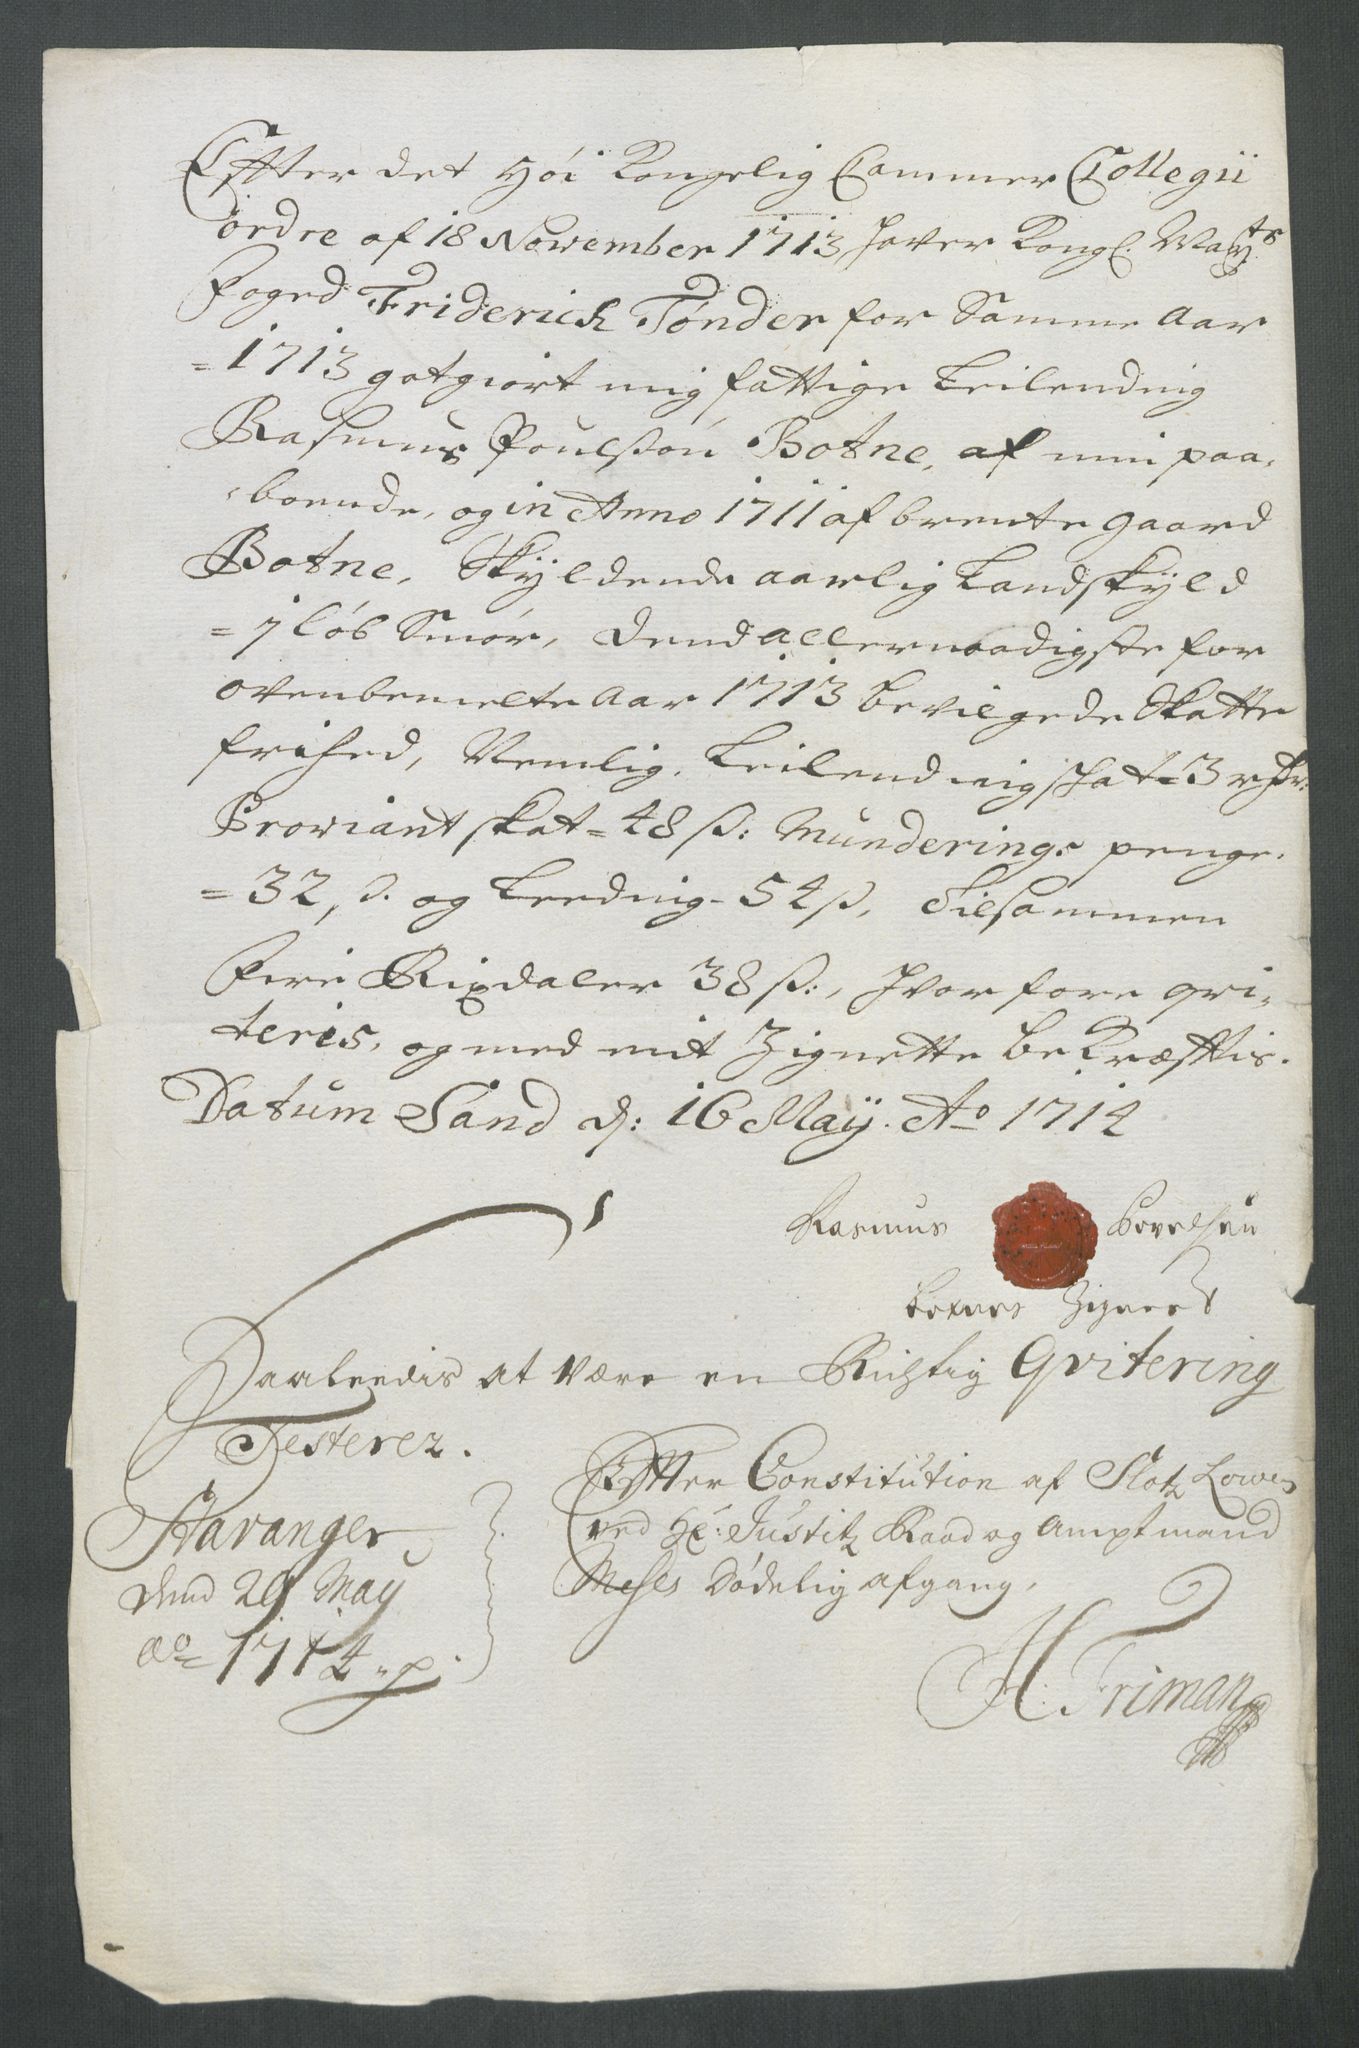 Effter det Höi Kongelig Cammer Collegii
ordre af 18 November 1713 haver Kongl. Mayts
foged Friderich Tønder for Samme Aar
=1713 gotgiort mig fattige Leilending
Rasmus Poulsøn Botne, af min paa-
boende, og in Anno 1711 afbrente gaard
Botne, Skyldende aarlig Landskyld
= 1 løb Smør, dend allernaadigste for
ovenbemelte Aar 1713 bevilgede Skatte
frihed, Nemlig, Leilendingskat = 3 rdr:
Proviant skat = 48 ß: Munderings penge.
=32 ß. og Leeding - 54 ß, Tilsammen
Fire Rixdaler 38 ß:, hvorfore qvi-
teris, og med mit Zignette bekræfftis.
Datum Sand d: 16 Maÿ. Ao 1714
Rasmus Povelsen
Botnes Zignet
Saaleedis at være en Richtig Qvitering
Testerer.
Effter Constitution af Slotz Lowen
ved Hr: Justitz Raad og Amptmand
Dødelig afgang.
Stavanger
dend 29 May
ao = 1714
H. Friman